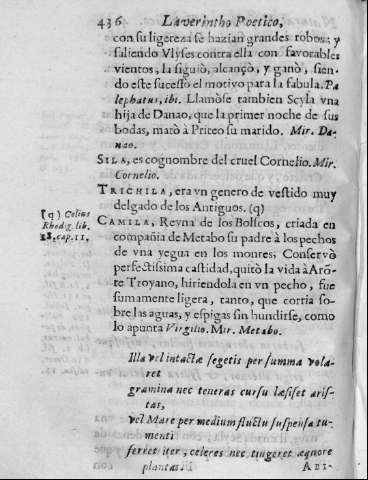 436 Laverintho Poetico,
con su ligereza se hazian grandes robos; y
saliendo Vlyses contra ella con fauorables
vientos, la siguiò, alcançò, y ganò, sien-
do este sucesso el motivo para la fabula. Pa
lephatus, ibi. Llamòse tambien Scyla vna
hija de Danao, que la primer noche de sus
bodas, matò à Priteo su marido. Mir. Da-
nao.
SILA, es cognombre del cruel Cornelio. Mir.
Cornelio.
TRICHILA, era vn genero de vestido muy
delgado de los Antiguos. (q)
(q) Celius
Rhodig. lib.
28. cap. 11.
CAMILA, Reyna de los Bolscos, criada en
compañia de Metabo su padre à los pechos
de vna yegua en los montes; Conservò
perfectissima castidad, quitò la vida à Arõ-
te Troyano, hiriendola en vn pecho, fue
sumamente ligera, tanto, que corria so-
bre las aguas, y espigas sin hundirse, como
lo apunta Virgilio. Mir. Metabo.
Illa vel intactæ segetis per summa vola-
ret
gramina nec teneras cursu læsisset aris-
tas,
vel Mare per medium fluctu suspensa tu-
menti
ferret iter, celeres nec tingeret æquore
plantas.